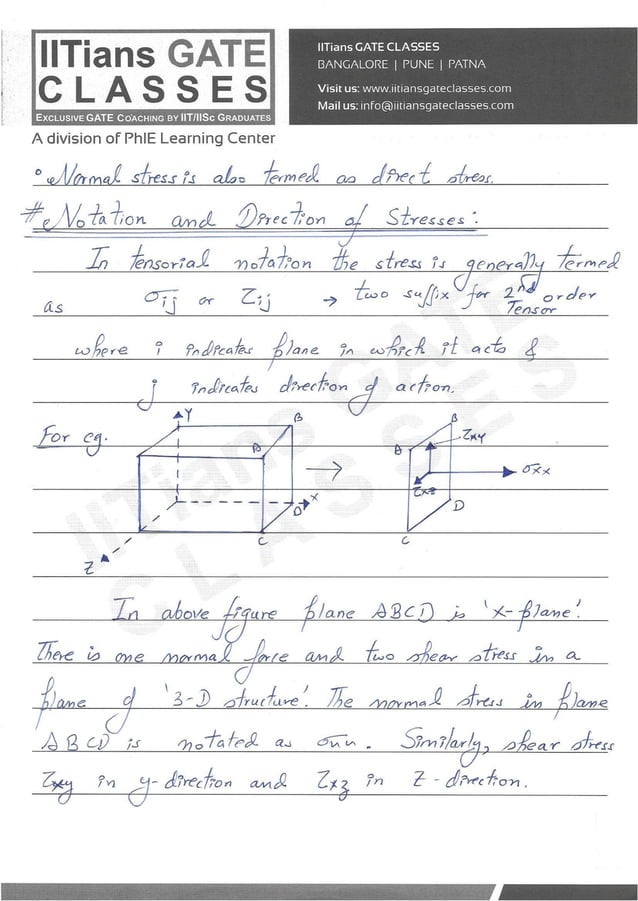 IITians GATE
CLASSES
EXCLUSIVE GATE COACHING BY IIT/IISc GRADUATES
A division of PhIE Learning Center
IITians GATE CLASSES
BANGALORE | PUNE | PATNA
Visit us: www.iitiansgateclasses.com
Mail us: info@iitiansgateclasses.com
Normal stress is also termed as direct stress.
# Notation and Direction of Stresses:
In tensorial notation the stress is generally termed
as σij or τij → two suffix for 2nd order Tensor
where i indicates plane in which it acts &
j indicates direction of action.
For eg.
Y
B
A
X
D
C
Z
→
B
A
τxy
σxx
τxz
D
C
In above figure plane ABCD is 'X-plane'.
There is one normal force and two shear stress in a
plane of '3-D structure'. The normal stress in plane
ABCD is notated as σnn. Similarly, shear stress
τxy in y-direction and τxz in z-direction.
IITians GATE
CLASSES